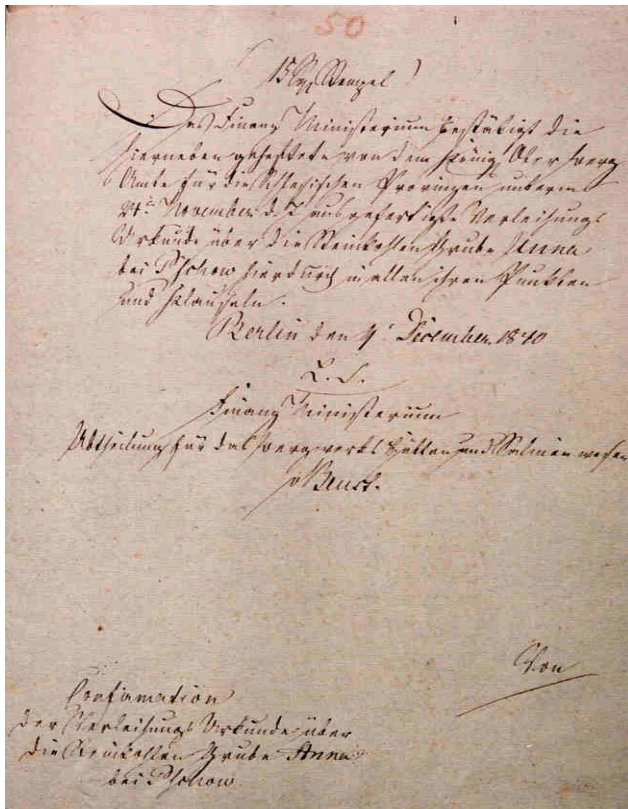 50
15 Sgr Stempel
Das Finanz Ministerium bestätigt die
hierneben geheftete von dem König. Ober Berg
Amte für die Schlesischen Provinzen unterm
November d. J. ausgefertigte Verleihungs
Urkunde über die Steinkohlen Grube Anna
bei Pschow hierdurch in allen ihren Punkten
und Klauseln.
Berlin den December 1840
L. S.
Finanz Ministerium
Abtheilung für das Bergwerks Hütten und Salinen wesen
v Beust.
Von
Confirmation
der Verleihungs Urkunde über
die Steinkohlen Grube Anna
bei Pschow.